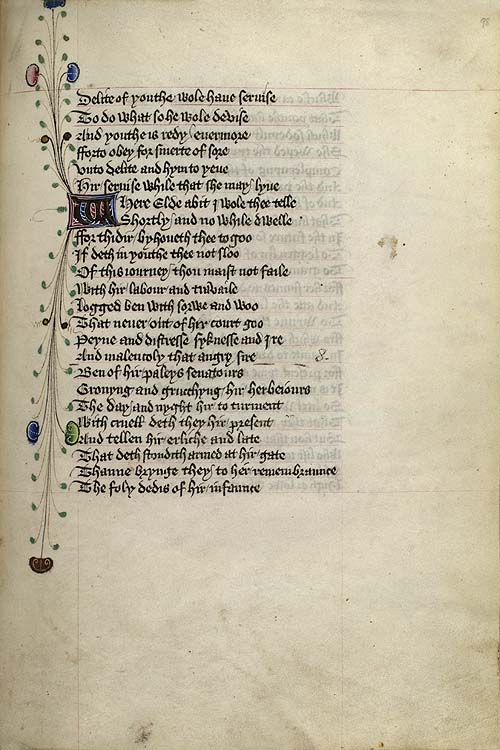 Delite of youthe wole haue seruise
To do what so he wole deuise
And youthe is redy euermore
fforto obey for smerte of sore
Vnto delite and hym to yeue
Hir seruise while that she may lyue
Where Elde abit I wole thee telle
Shortly and no while dwelle
ffor thidir byhoueth thee to goo
If deth in youthe thee not sloo
Of this iourney thou maist not faile
With hir labour and trauaile
Logged ben with sorwe and woo
That neuer out of hir court goo
Peyne and distresse syknesse and Ire
And malencoly that angry sire
Ben of hir paleys senatours
Gronyng and grucchyng hir herbeiours
The day and nyght hir to turment
With cruell deth they hir present
And tellen hir erliche and late
That deth stondith armed at hir gate
Thanne brynge they to her remembraunce
The foly dedis of hir infaunce